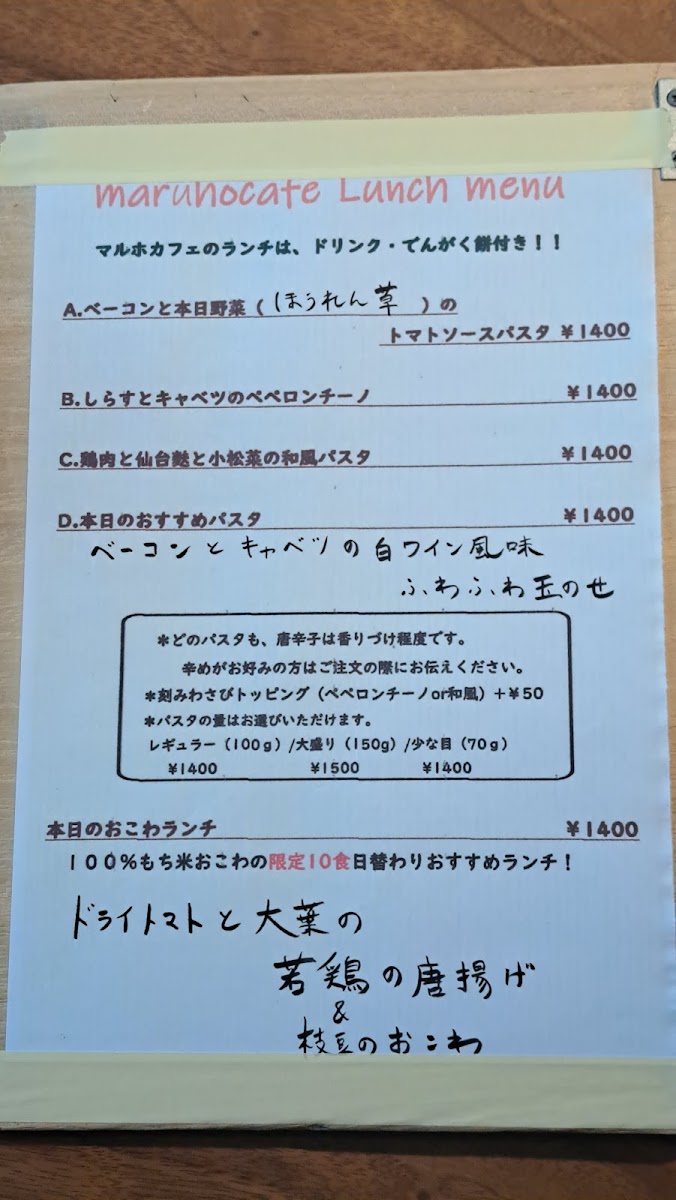 maruhocafe Lunch menu
マルホカフェのランチは、ドリンク・でんがく餅付き！！
A.ベーコンと本日野菜（ほうれん草）の
トマトソースパスタ ¥1400
B.しらすとキャベツのペペロンチーノ ¥1400
C.鶏肉と仙台麩と小松菜の和風パスタ ¥1400
D.本日のおすすめパスタ ¥1400
ベーコンとキャベツの白ワイン風味
ふわふわ玉のせ
＊どのパスタも、唐辛子は香りづけ程度です。
辛めがお好みの方はご注文の際にお伝えください。
＊刻みわさびトッピング（ペペロンチーノor和風）＋¥50
＊パスタの量はお選びいただけます。
レギュラー（100ｇ）/大盛り（150g）/少な目（70ｇ）
¥1400 ¥1500 ¥1400
本日のおこわランチ ¥1400
１００％もち米おこわの限定10食日替わりおすすめランチ！
ドライトマトと大葉の
若鶏の唐揚げ
&
枝豆のおこわ